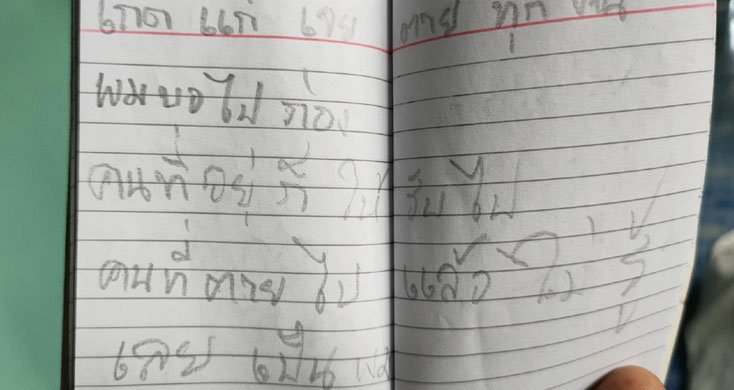 เกด แก่ เจบ ตาย ทุก
ผมขอไป ก่อง
คนที่ อยู่ ก็ ใช้ รับ ไป
คนที่ ตาย ไป แล้ว ไม่ รู้
เลย เป็น